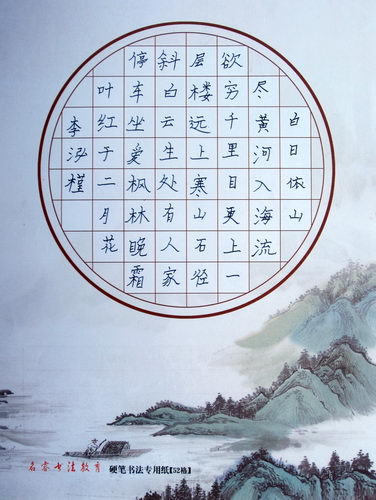 白日依山
尽黄河入海流
欲穷千里目更上一
层楼远上寒山石径
斜白云生处有人家
停车坐爱枫林晚霜
叶红于二月花
李泓槿
名睿书法教育 硬笔书法专用纸【52格】